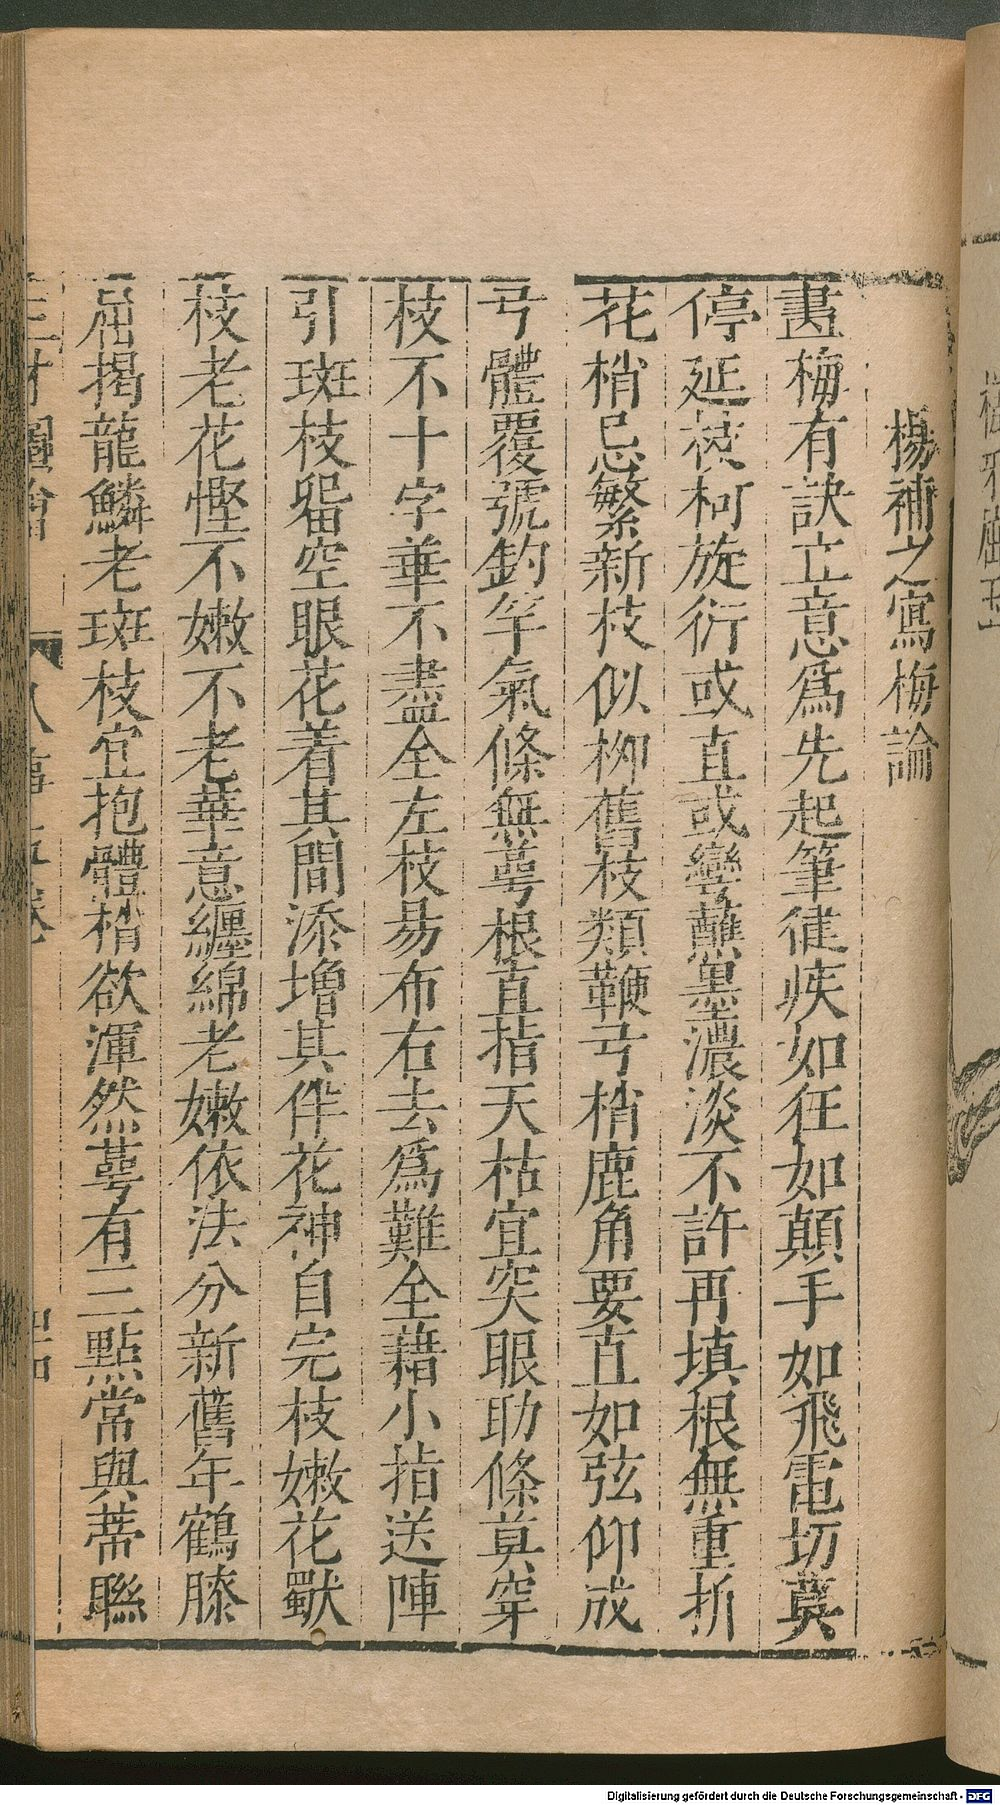 楊補之寫梅論
畫梅有訣立意爲先起筆徤疾如狂如顛手如飛電切莫
停延枝柯旋衍或直或彎蘸墨濃淡不許再填根無重折
花梢忌繁新枝似柳舊枝類鞭弓梢鹿角要直如弦仰成
弓體覆號釣竿氣條無蕚根直指天枯宜突眼助條莫穿
枝不十字華不盡全左枝易布右去爲難全藉小指送陣
引斑枝留空眼花着其間添增其伴花神自完枝嫩花獣
枝老花慳不嫩不老華意纏綿老嫩依法分新舊年鶴膝
屈揭龍鱗老斑枝宜抱體梢欲渾然蕚有三點常與蒂聯
三才圖會
人事五卷
Digitalisierung gefördert durch die Deutsche Forschungsgemeinschaft - DFG